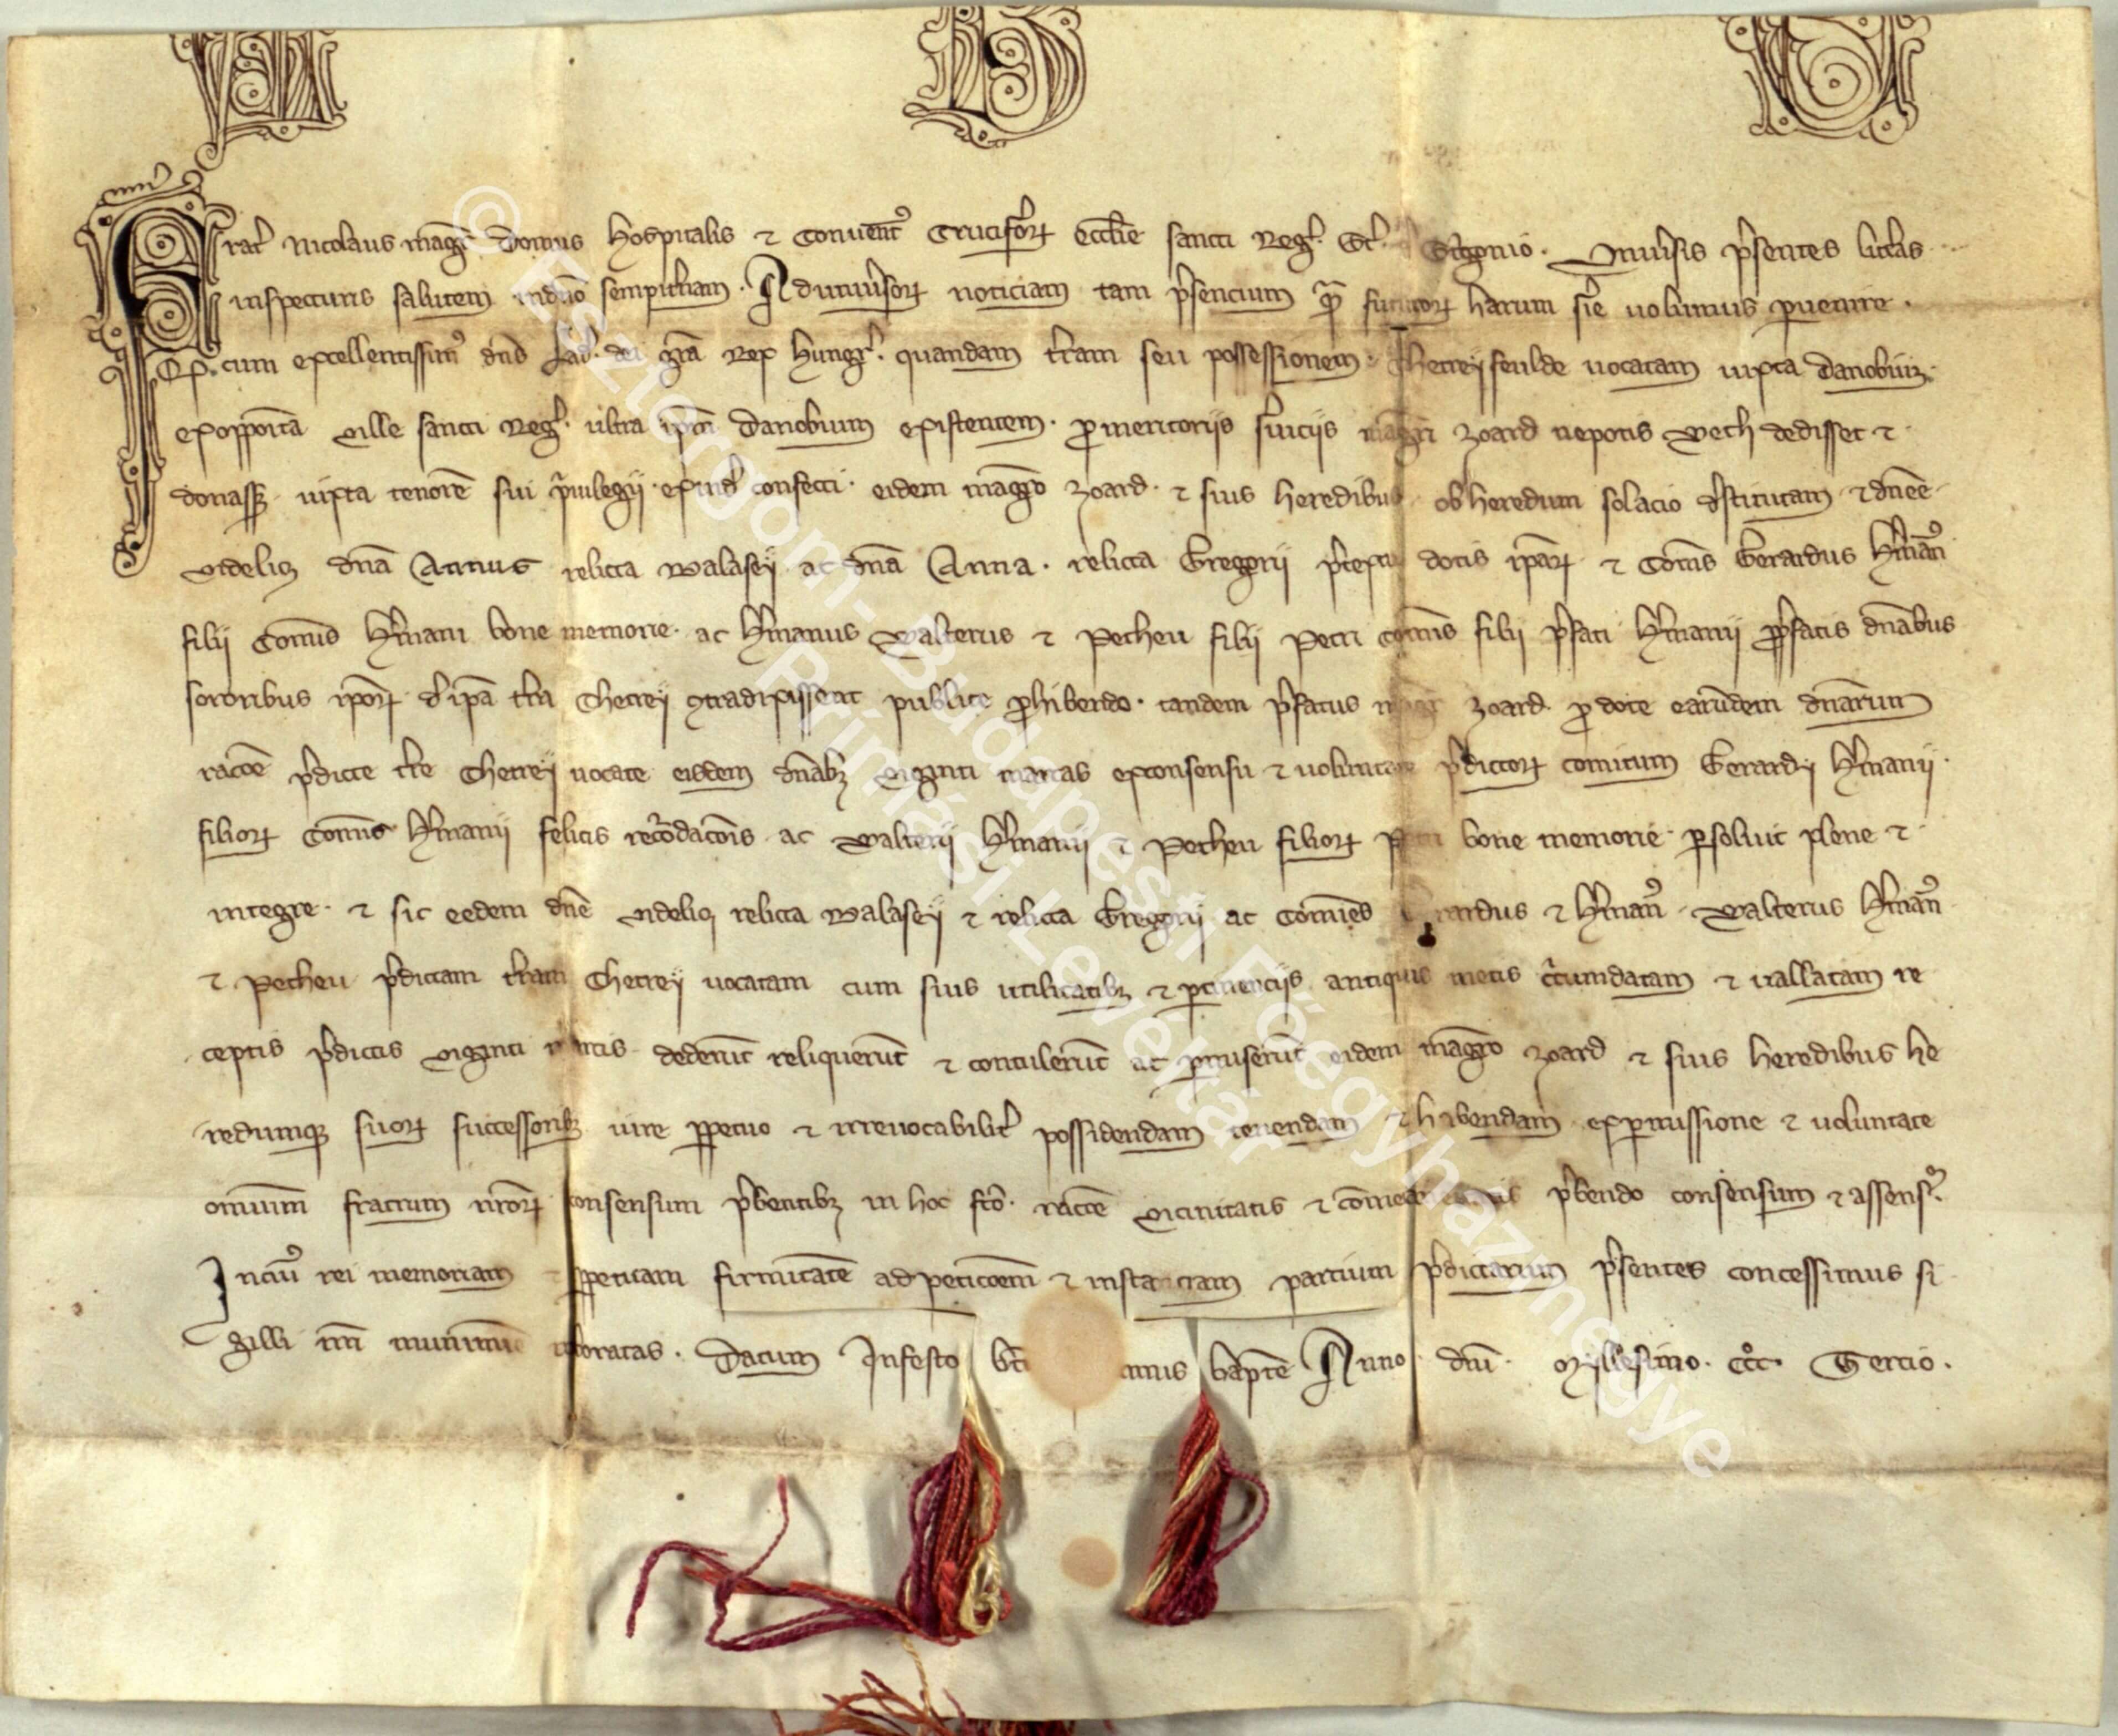 A B C
Frater Nicolaus magr domus hospitalis ⁊ conuent9 Crucifero℞ ecclie sancti Reg. Sc. de Strigonio. Vniu'sis p'sentes litt'as
inspecturis salutem in dno sempit'nam. Ad uniu'so℞ noticiam tam p'sencium q̃ futuro℞ harum s'ie uolumus peruenire.
Q cum excellentissim9 dns Lad. dei gra Rex hungr. quandam t'ram seu possessionem Thetreyfeulde uocatam iuxta danobiuz
ex opposita uille sancti Reg. ultra ipm danobium existentem. pro meritoriis s'uiciis magri zoard nepotis Wech dedisset ⁊
donassz iuxta tenore sui p'uilegii exind' confecti. eidem magro zoard. ⁊ suis heredibus ob heredum solacio destitutam ⁊ dnee
videlicz dna Annus relicta Balasey ac dna Anna. relicta Gregorii p'textu dotis ipa℞ ⁊ Comes Gerardus H'man9
filii Comitis H'mani bone memorie. ac H'manus Walterus ⁊ Petheu filii Petri Comitis filii p'fati H'manii p'fatis dnabus
sororibus ipo℞ de ipa t'ra Thetrey contradixissent publice prohibendo. tandem p'fatus magr zoard. pro dote earundem dnarum
racoe p'dicte t're Thetrey uocate eisdem dnabz viginti marcas ex consensu ⁊ uoluntate p'dicto℞ comitum Gerardy H'manii.
filio℞ Comitis H'manii felicis recordacois ac Walterii H'manii ⁊ Petheu filio℞ Petri bone memorie. persoluit plene ⁊
integre. ⁊ sic eedem dne videlicz relicta Balasey ⁊ relicta Gregorii ac Comites Gerardus ⁊ H'man9 Walterus H'man9
⁊ Petheu p'dictam t'ram Thetrey uocatam cum suis utilitatibz ⁊ pertinenciis antiquis metis circumdatam ⁊ uallatam re
ceptis p'dictis viginti marcis dederunt reliquerunt ⁊ contulerunt ac permiserunt eidem magro zoard ⁊ suis heredibus he
redumqz suo℞ successoribz iure perpetuo ⁊ irreuocabilit' possidendam tenendam ⁊ habendam ex permissione ⁊ uoluntate
omnium fratrum n'ro℞ consensum p'bentibz in hoc fco. racoe vicinitatis ⁊ p'bendo consensum ⁊ assens9.
In cui9 rei memoriam ⁊ perpetuam firmitate ad peticoem ⁊ instanciam partium p'dictarum p'sentes concessimus si
gilli nri munimine roboratas. Datum In festo bti Iohannis bapte Anno dni. Millesimo. CCC. Tercio.
© Esztergom-Budapesti Főegyházmegye
Prímási Levéltár